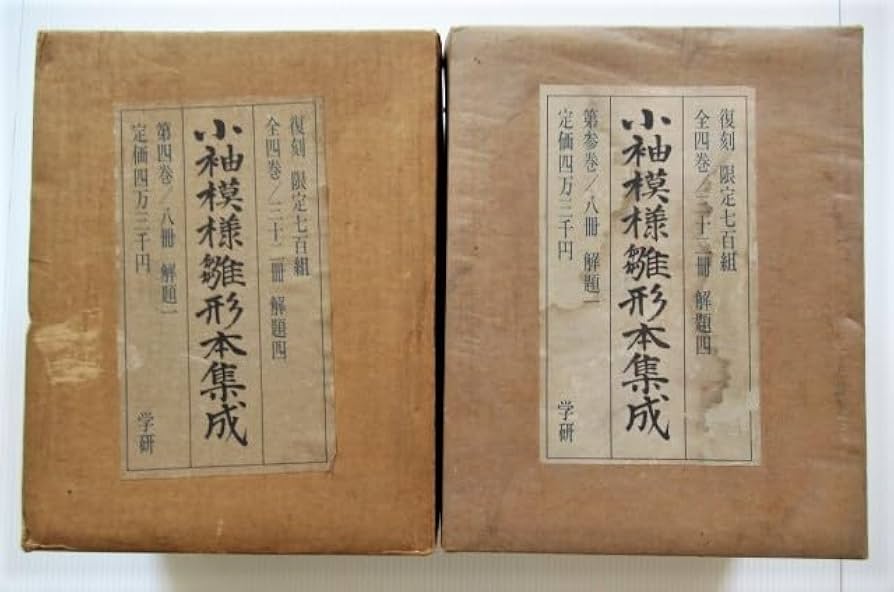 復刻 限定七百組
全四巻/三十二冊 解題四
小袖模様雛形本集成
第四巻/八冊 解題一
定価四万三千円
学研
復刻 限定七百組
全四巻/三十二冊 解題四
小袖模様雛形本集成
第参巻/八冊 解題一
定価四万三千円
学研